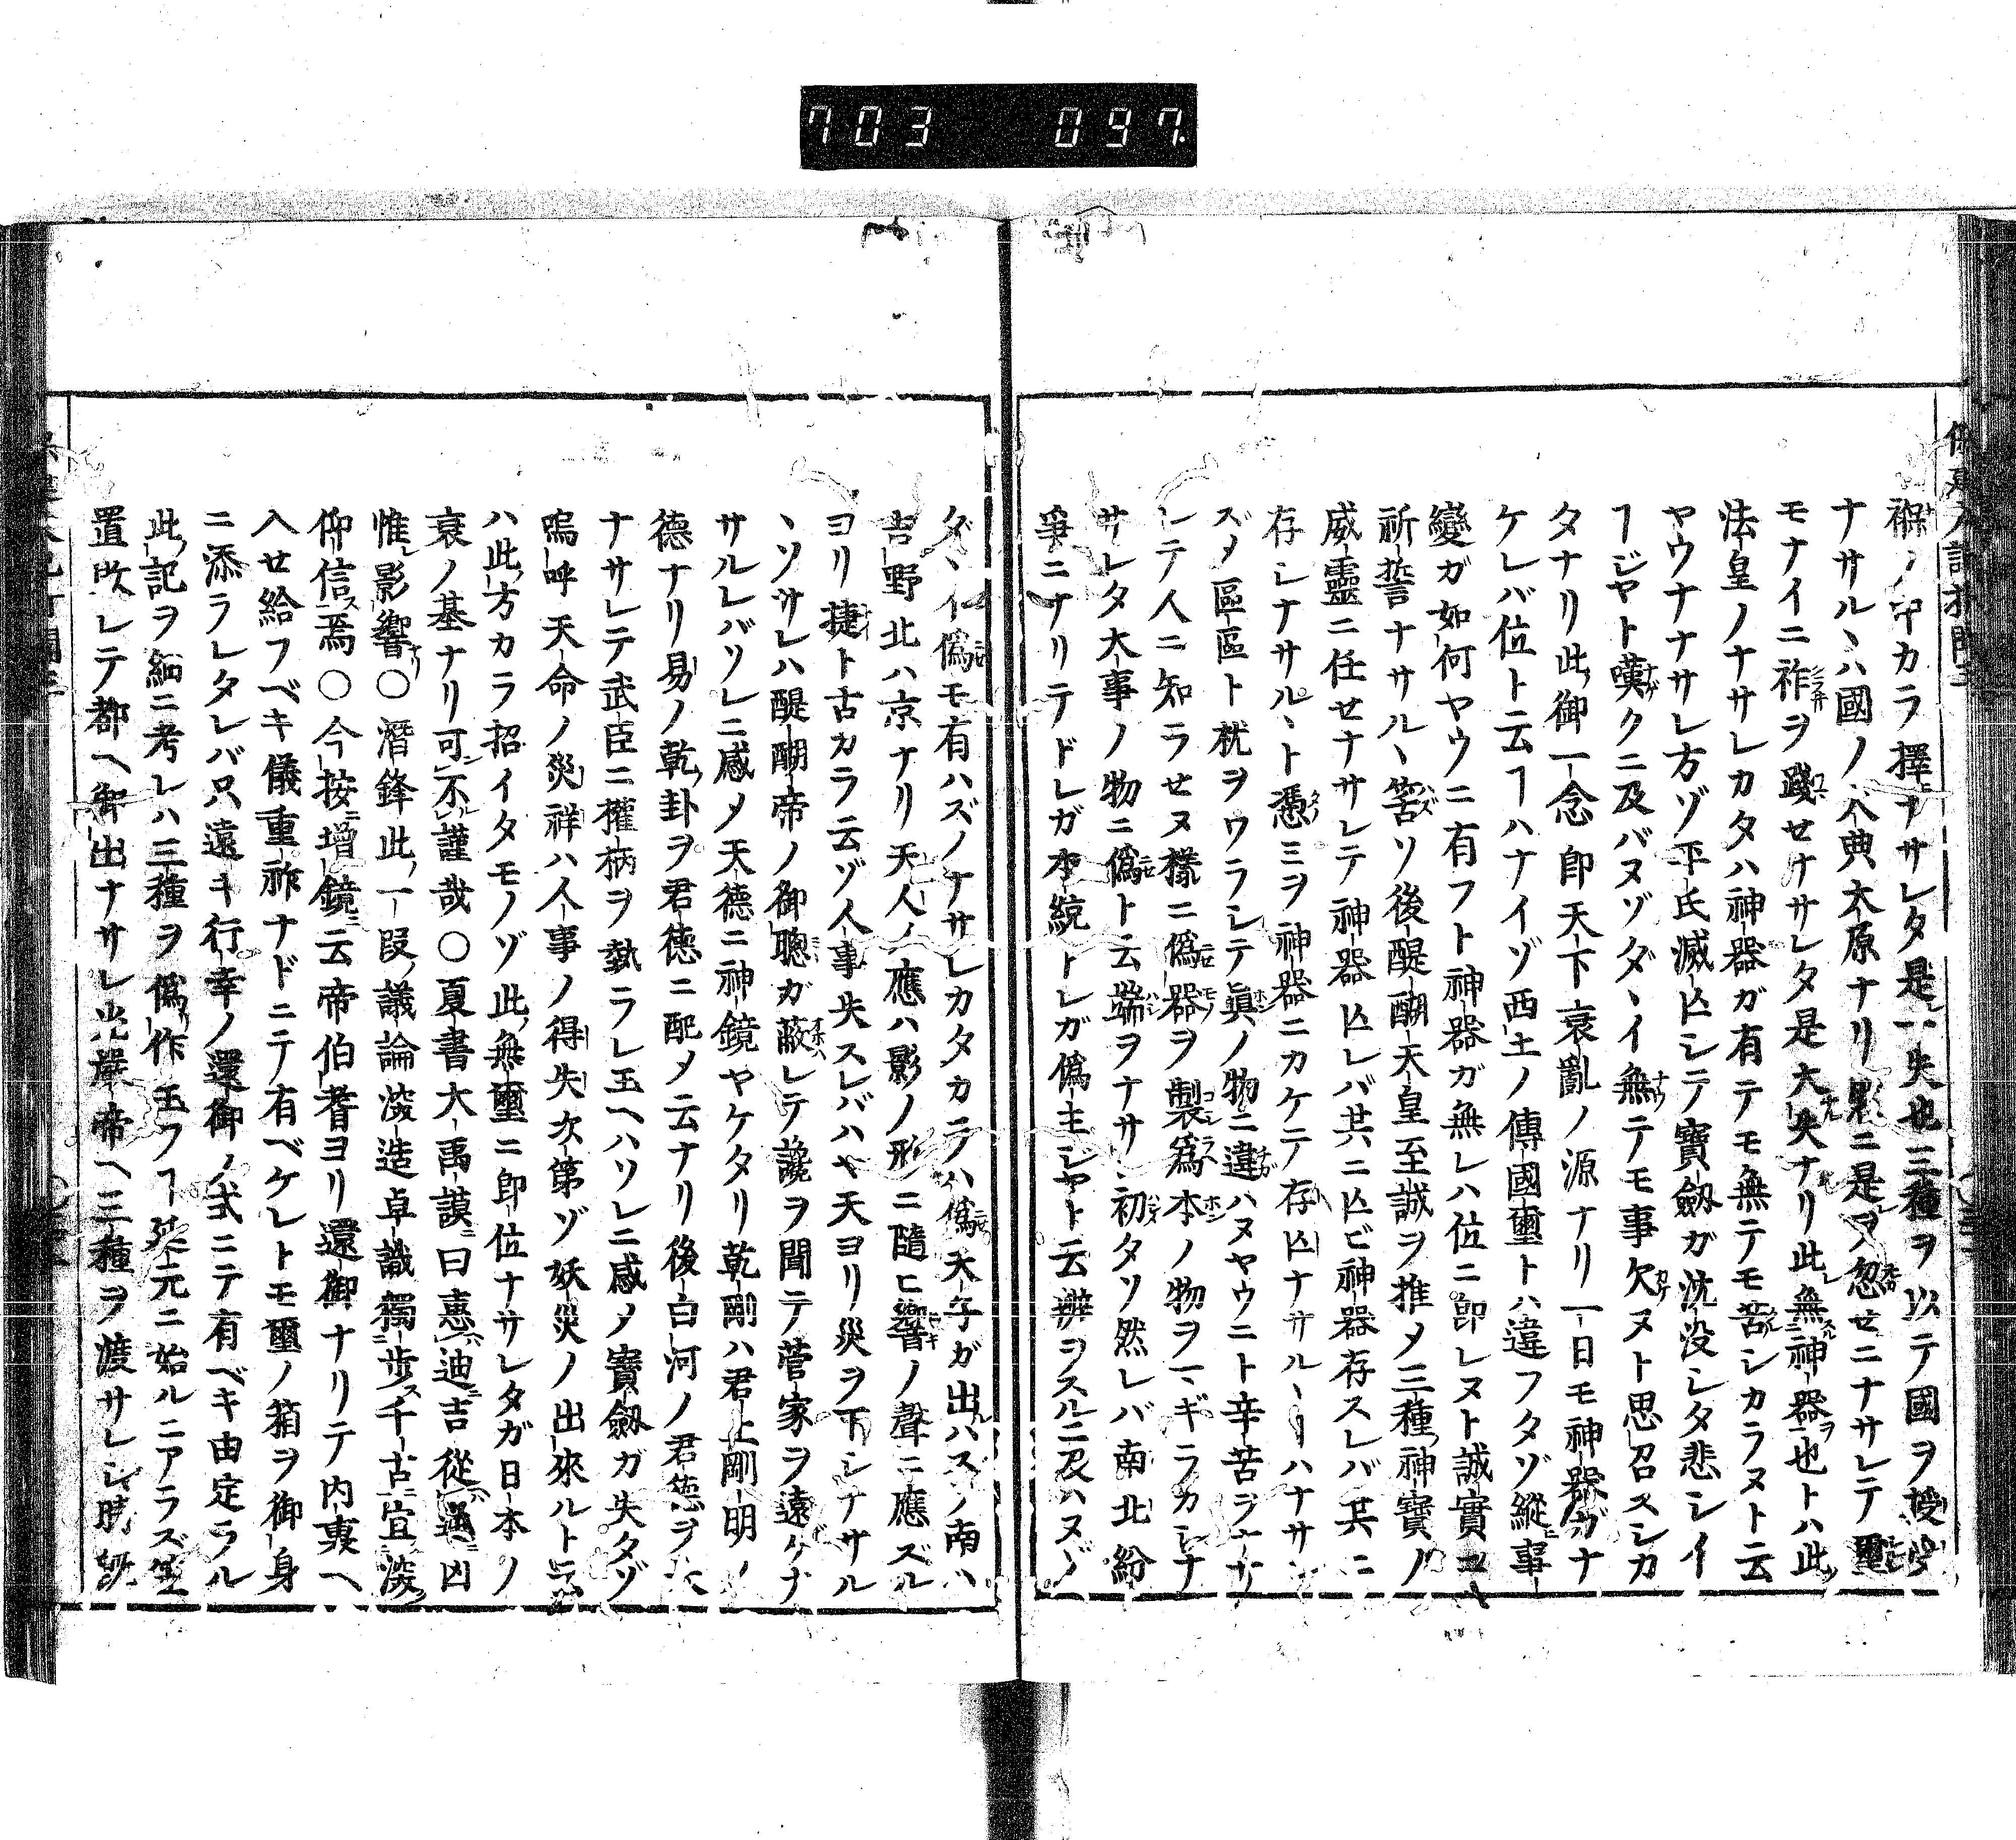 703 097
褓ノ中カラ擇ナサレタ是一失也三種ヲ以テ國ヲ授受
ナサルヽハ國ノ大典太原ナリ累ニ是ヲ忽セニナサレテ璽
モナイニ祚ヲ踐セナサレタ是大失ナリ此無神器也トハ此
法皇ノナサレカタハ神器ガ有テモ無テモ苦シカラヌト云
ヤウナナサレ方ゾ平氏滅亡シテ寳劔ガ沈没シタ悲シイ
ヿジヤト嘆クニ及バヌゾダヽイ無テモ事欠ヌト思召スシカ
タナリ此御一念即天下衰亂ノ源ナリ一日モ神器ガナ
ケレバ位ト云ヿハナイゾ西土ノ傳國璽トハ違フタゾ縱事
變ガ如何ヤウニ有フト神器ガ無レハ位ニ即レヌト誠實ニ
祈誓ナサルヽ筈ソ後醍醐天皇至誠ヲ推メ三種神寳ノ
威靈ニ任セナサレテ神器亡レバ共ニ亡ビ神器存スレバ共ニ
存シナサルヽト憑ミヲ神器ニカケテ存亡ナサルヽ
ズメ區區ト枕ヲワラシテ眞ノ物ニ違ハヌヤウニト辛苦ラナサ
レテ人ニ知ラセヌ樣ニ僞器ヲ製爲本ノ物ヲマギラカシナ
サレタ大事ノ物ニ僞ト云端ヲナサレ初タソ然レバ南北紛
爭ニナリテドレガ本統トレガ僞主シヤト云辨ヲスルニ及ハヌゾ
ダヽイ僞モ有ハズノナサレカタカラハ僞天子ガ出ハズノ南ハ
吉野北ハ京ナリ天人ノ應ハ影ノ形ニ隨ヒ響ノ聲ニ應ズル
ヨリ捷ト古カラ云ゾ人事失スレバハヤ天ヨリ災ヲ下シナサル
ヽソサレハ醍醐帝ノ御聰ガ蔽レテ讒ヲ聞テ菅家ヲ遠ケナ
サルレバソレニ感メ天德ニ神鏡ヤケタリ乾剛ハ君上剛明ノ
德ナリ易ノ乾卦ヲ君徳ニ配メ云ナリ後白河ノ君徳ヲ
ナサレテ武臣ニ權柄ヲ執ラレ玉ヘハソレニ感メ寳劔ガ失タゾ
嗚呼天命ノ災祥ハ人事ノ得失次第ゾ妖災ノ出來ルト云
ハ此方カラ招イタモノゾ此無璽ニ即位ナサレタガ日本ノ
衰ノ基ナリ可不謹哉〇夏書大禹謨曰惠迪吉從逆凶
惟影響〇潛鋒此一段議論深造卓識獨歩千古宜深
仰信焉〇今按増鏡ニ云帝伯耆ヨリ還御ナリテ内裏ヘ
入セ給フベキ儀重祚ナドニテ有ベケレトモ璽ノ箱ヲ御身
ニ添ラレタレバ只遠キ行幸ノ還御ノ式ニテ有ベキ由定ラル
此記ヲ細ニ考レハ三種ヲ僞作玉フヿ延元ニ始ルニアラズ
置玫レテ都ヘ御出ナサレ光嚴帝ヘ三種ヲ渡サレシ時